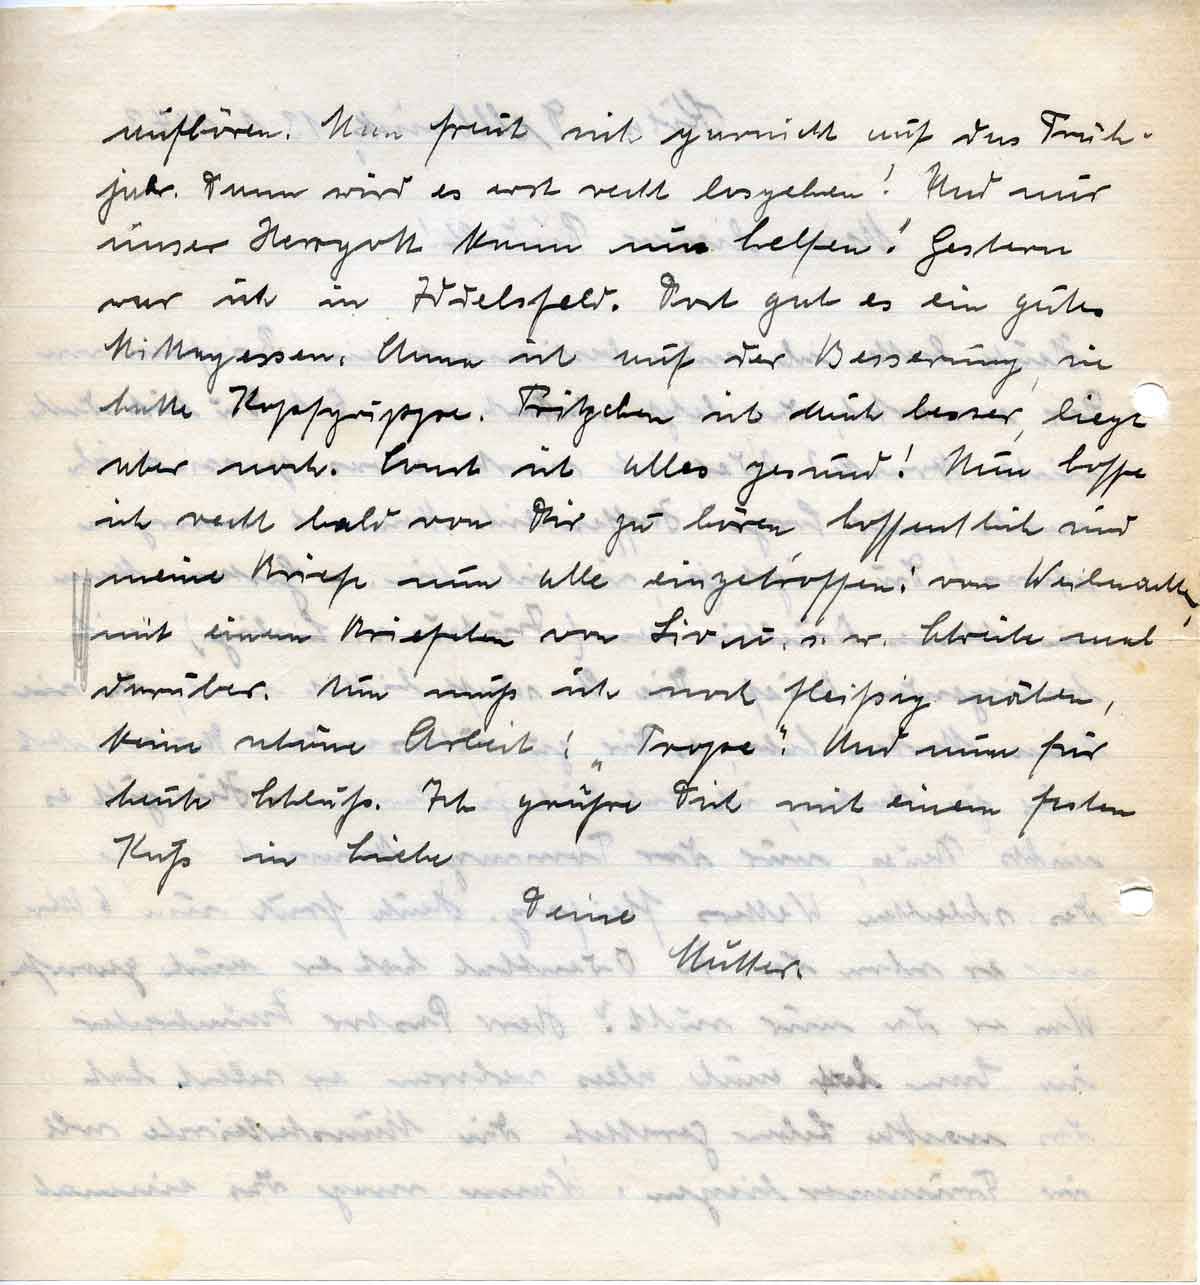 aufhören. Man freut sich garnicht auf das Früh-
jahr. Dann wird es erst recht losgehen! Und nur
unser Herrgott kann uns helfen! Gestern
war ich in Iddelsfeld. Dort gab es ein gutes
Mittagessen. Anna ist auf der Besserung, sie
hatte Kopfgrippe. Fritzchen ist auch besser, liegt
aber noch. Sonst ist alles gesund! Nun hoffe
ich recht bald von Dir zu hören hoffentlich sind
meine Briefe nun alle eingetroffen! von Weihnachten,
mit einem Briefchen von u. s. w. Schreibe mal
darüber. Nun muß ich noch fleißig nähen,
keine schöne Arbeit! „Trope“! Und nun für
heute Schluß. Ich grüße Dich mit einem festen
Kuß in Liebe
Deine
Mutter.